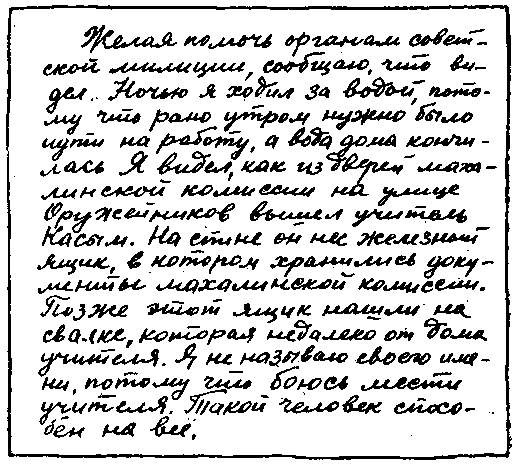 Желая помочь органам совет-
ской милиции, сообщаю, что ви-
дел. Ночью я ходил за водой, пото-
му что рано утром нужно было
идти на работу, а вода дома кончи-
лась Я видел, как из дверей маха-
линской комиссии на улице
Оружейников вышел учитель
Касым. На спине он нес железный
ящик, в котором хранились доку-
менты махалинской комиссии.
Позже этот ящик нашли на
свалке, которая недалеко от дома
учителя. Я не называю своего име-
ни, потому что боюсь мести
учителя. Такой человек спосо-
бен на все.